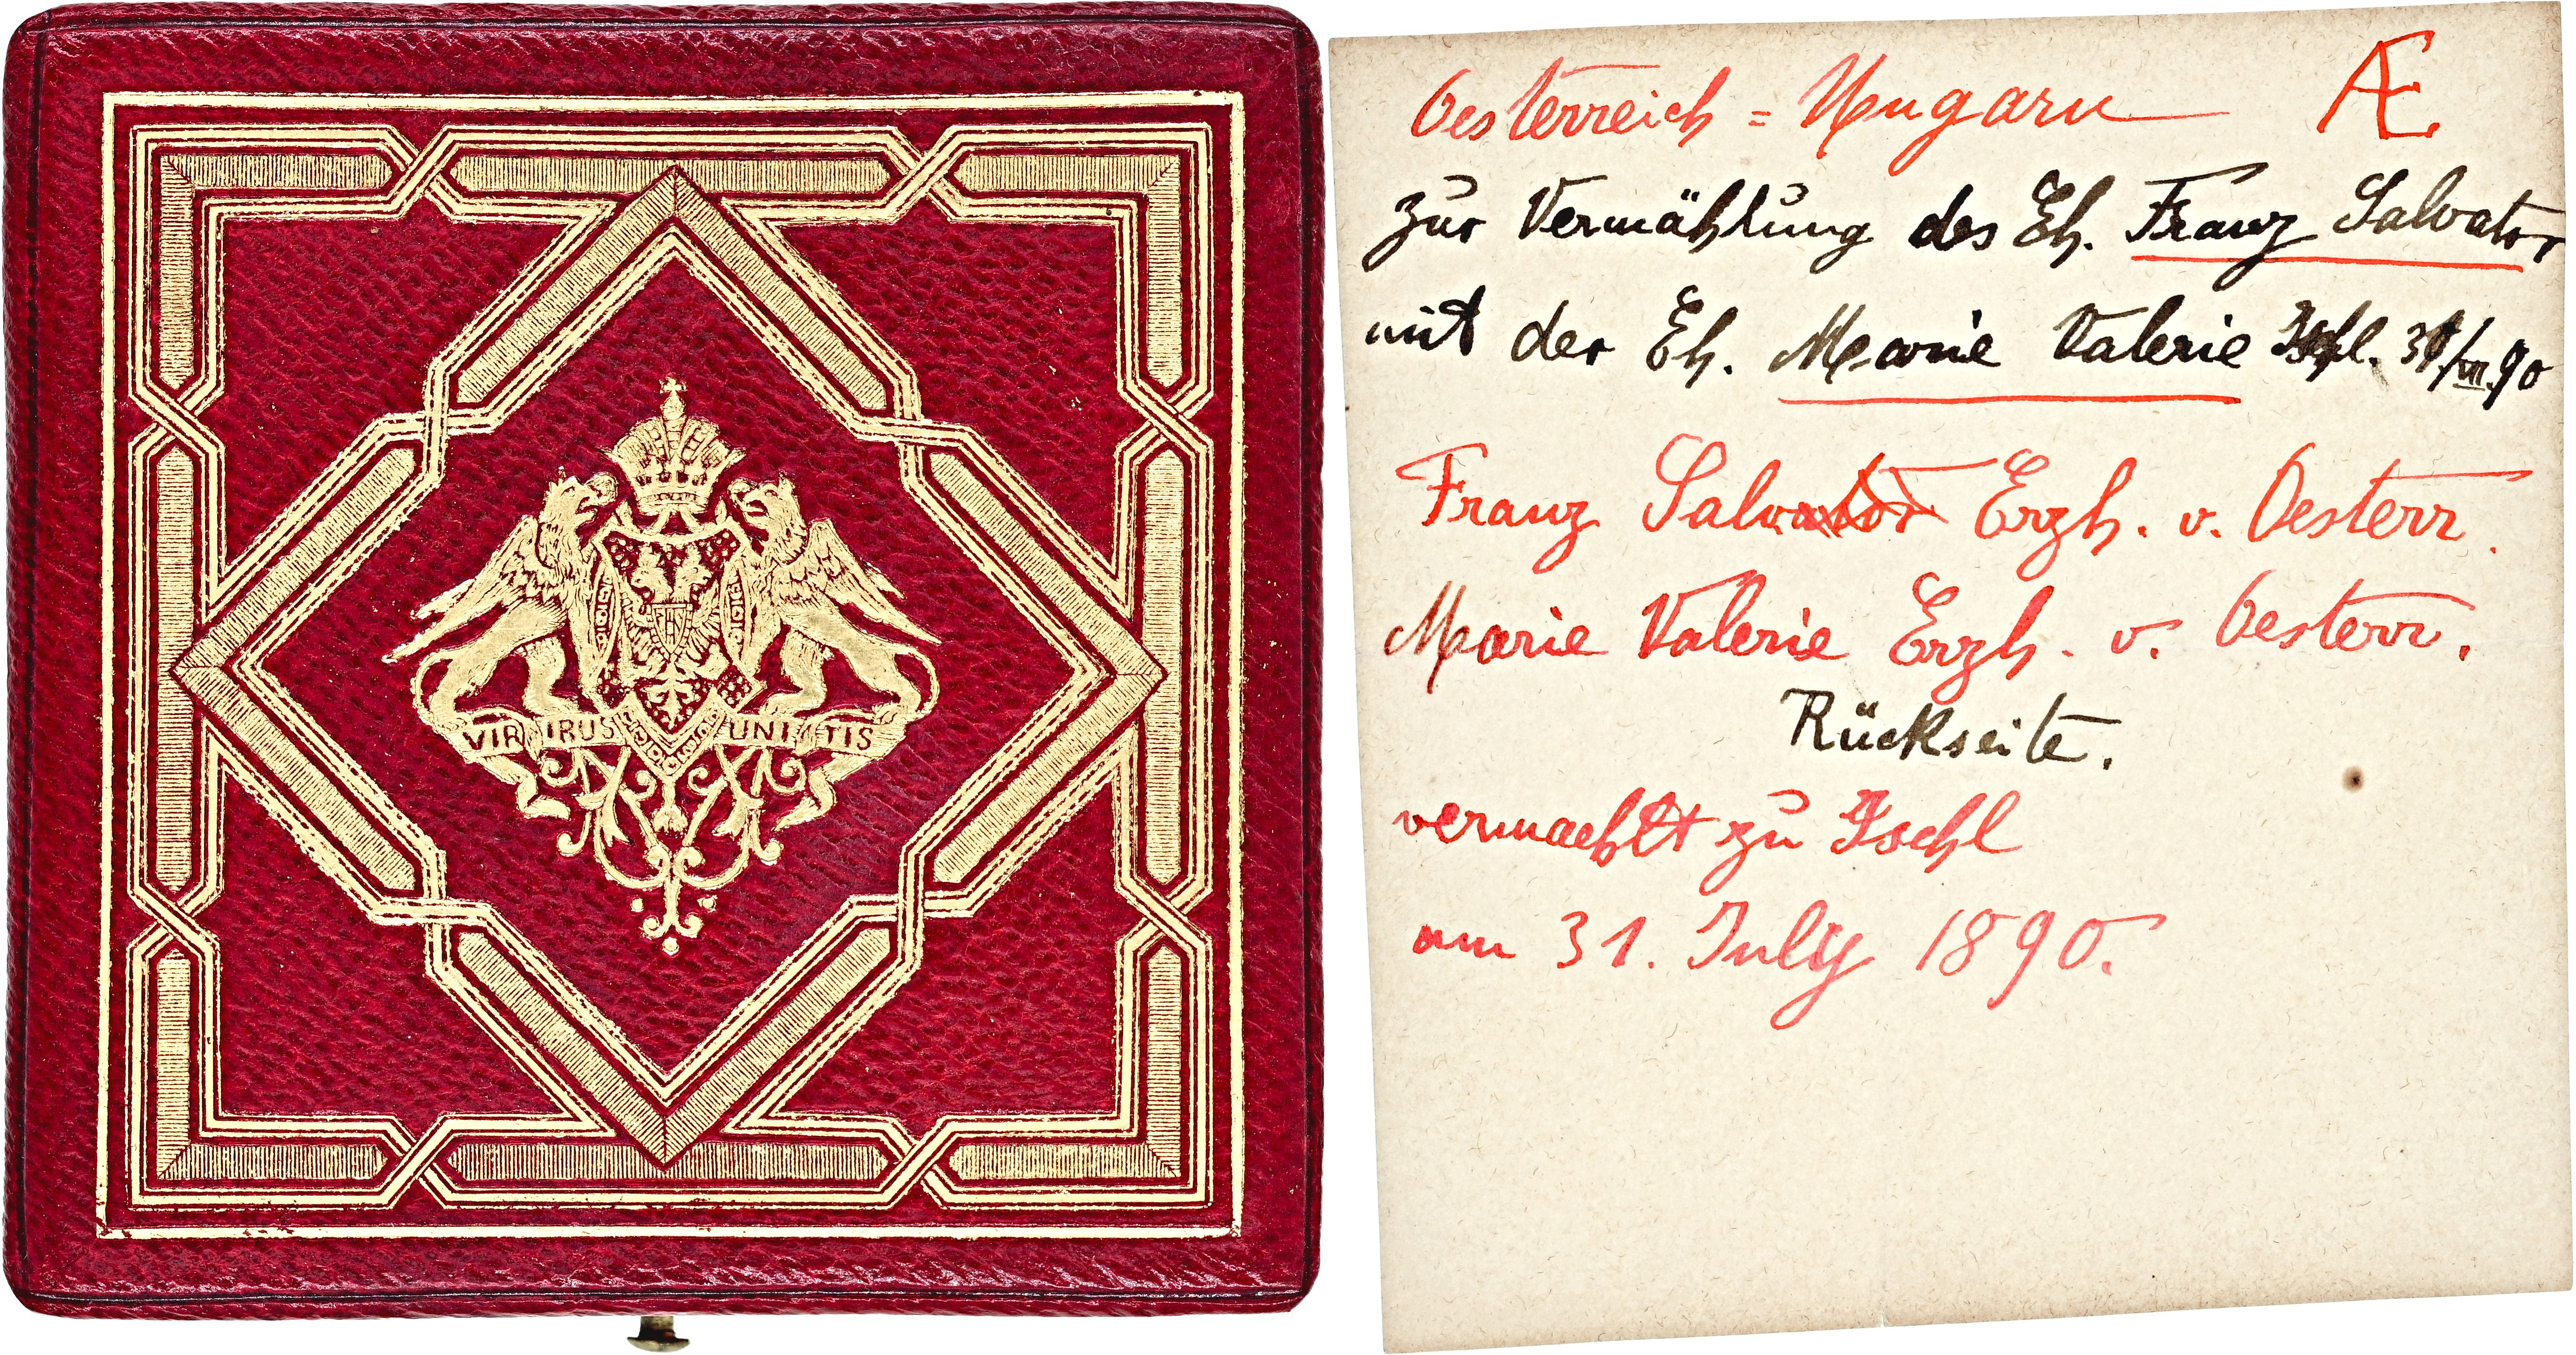 VIRIBUS UNITIS
Oesterreich = Ungarn Æ
zur Vermählung des Eh. Franz Salvator
mit der Eh. Marie Valerie Ischl. 31/VII.90
Franz Salvator Erzh. v. Oesterr.
Marie Valerie Erzh. v. Oesterr.
Rückseite.
vermaehlt zu Ischl
am 31. July 1890.